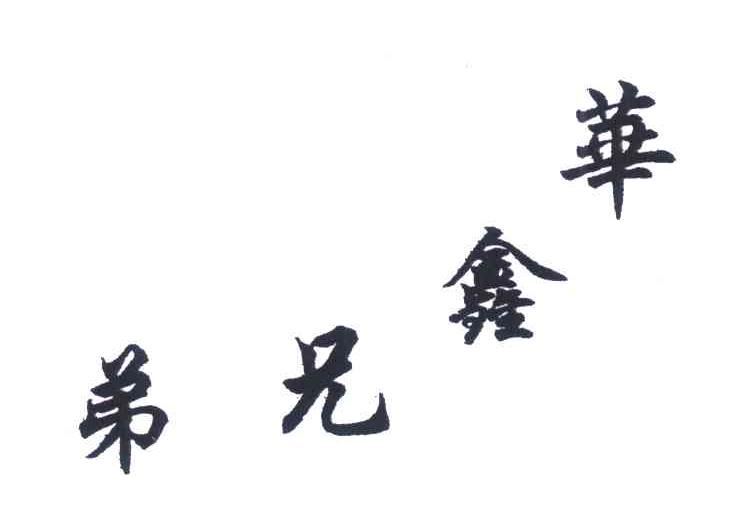 華鑫兄弟